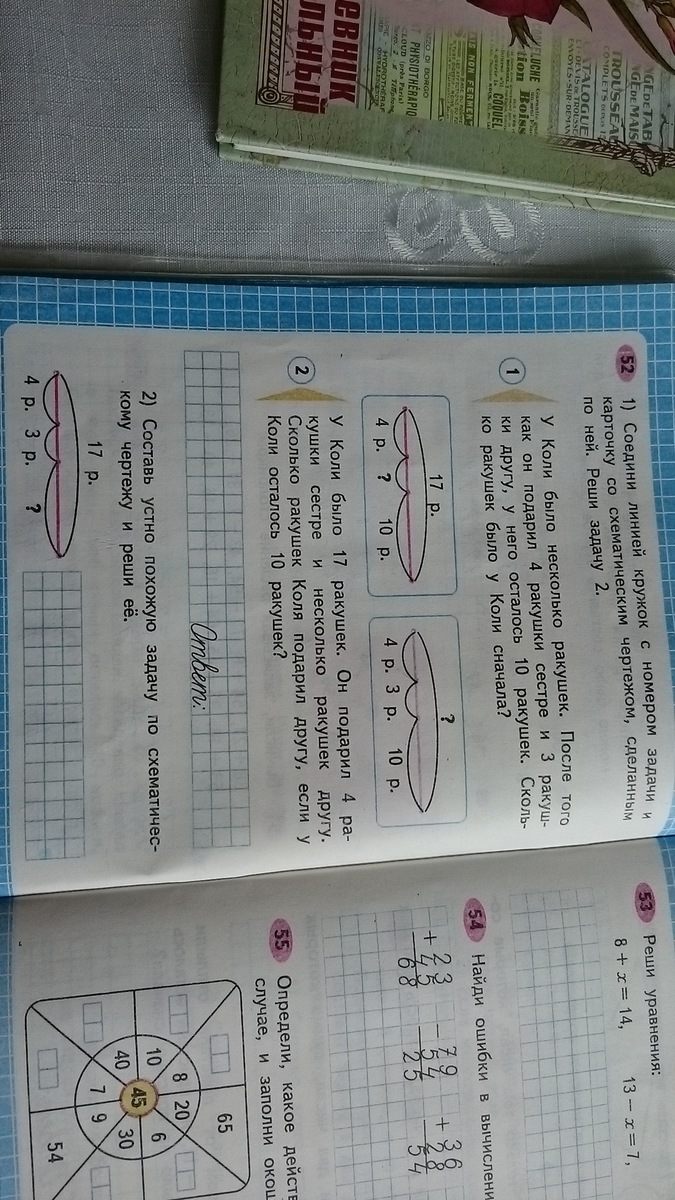 ЕВНИК
ЛЬНЫЙ
NON FERMEN
COQUEL
TROUSSEAU
CATALOGUE
52 1) Соедини линией кружок с номером задачи и
карточку со схематическим чертежом, сделанным
по ней. Реши задачу 2.
1 У Коли было несколько ракушек. После того
как он подарил 4 ракушки сестре и 3 ракуш-
ки другу, у него осталось 10 ракушек. Сколь-
ко ракушек было у Коли сначала?
17 р.
4 р. ? 10 р.
?
4 р. 3 р. 10 р.
2 У Коли было 17 ракушек. Он подарил 4 ра-
кушки сестре и несколько ракушек другу.
Сколько ракушек Коля подарил другу, если у
Коли осталось 10 ракушек?
Ответ:
2) Составь устно похожую задачу по схематичес-
кому чертежу и реши её.
17 р.
4 р. 3 р. ?
53 Реши уравнения:
8 + x = 14, 13 − x = 7,
54 Найди ошибки в вычислени
+ 23 − 79 + 36
45 54 28
68 25 54
55 Определи, какое действ
случае, и заполни окош
65
8 20
10 6
45
40 30
7 9
54